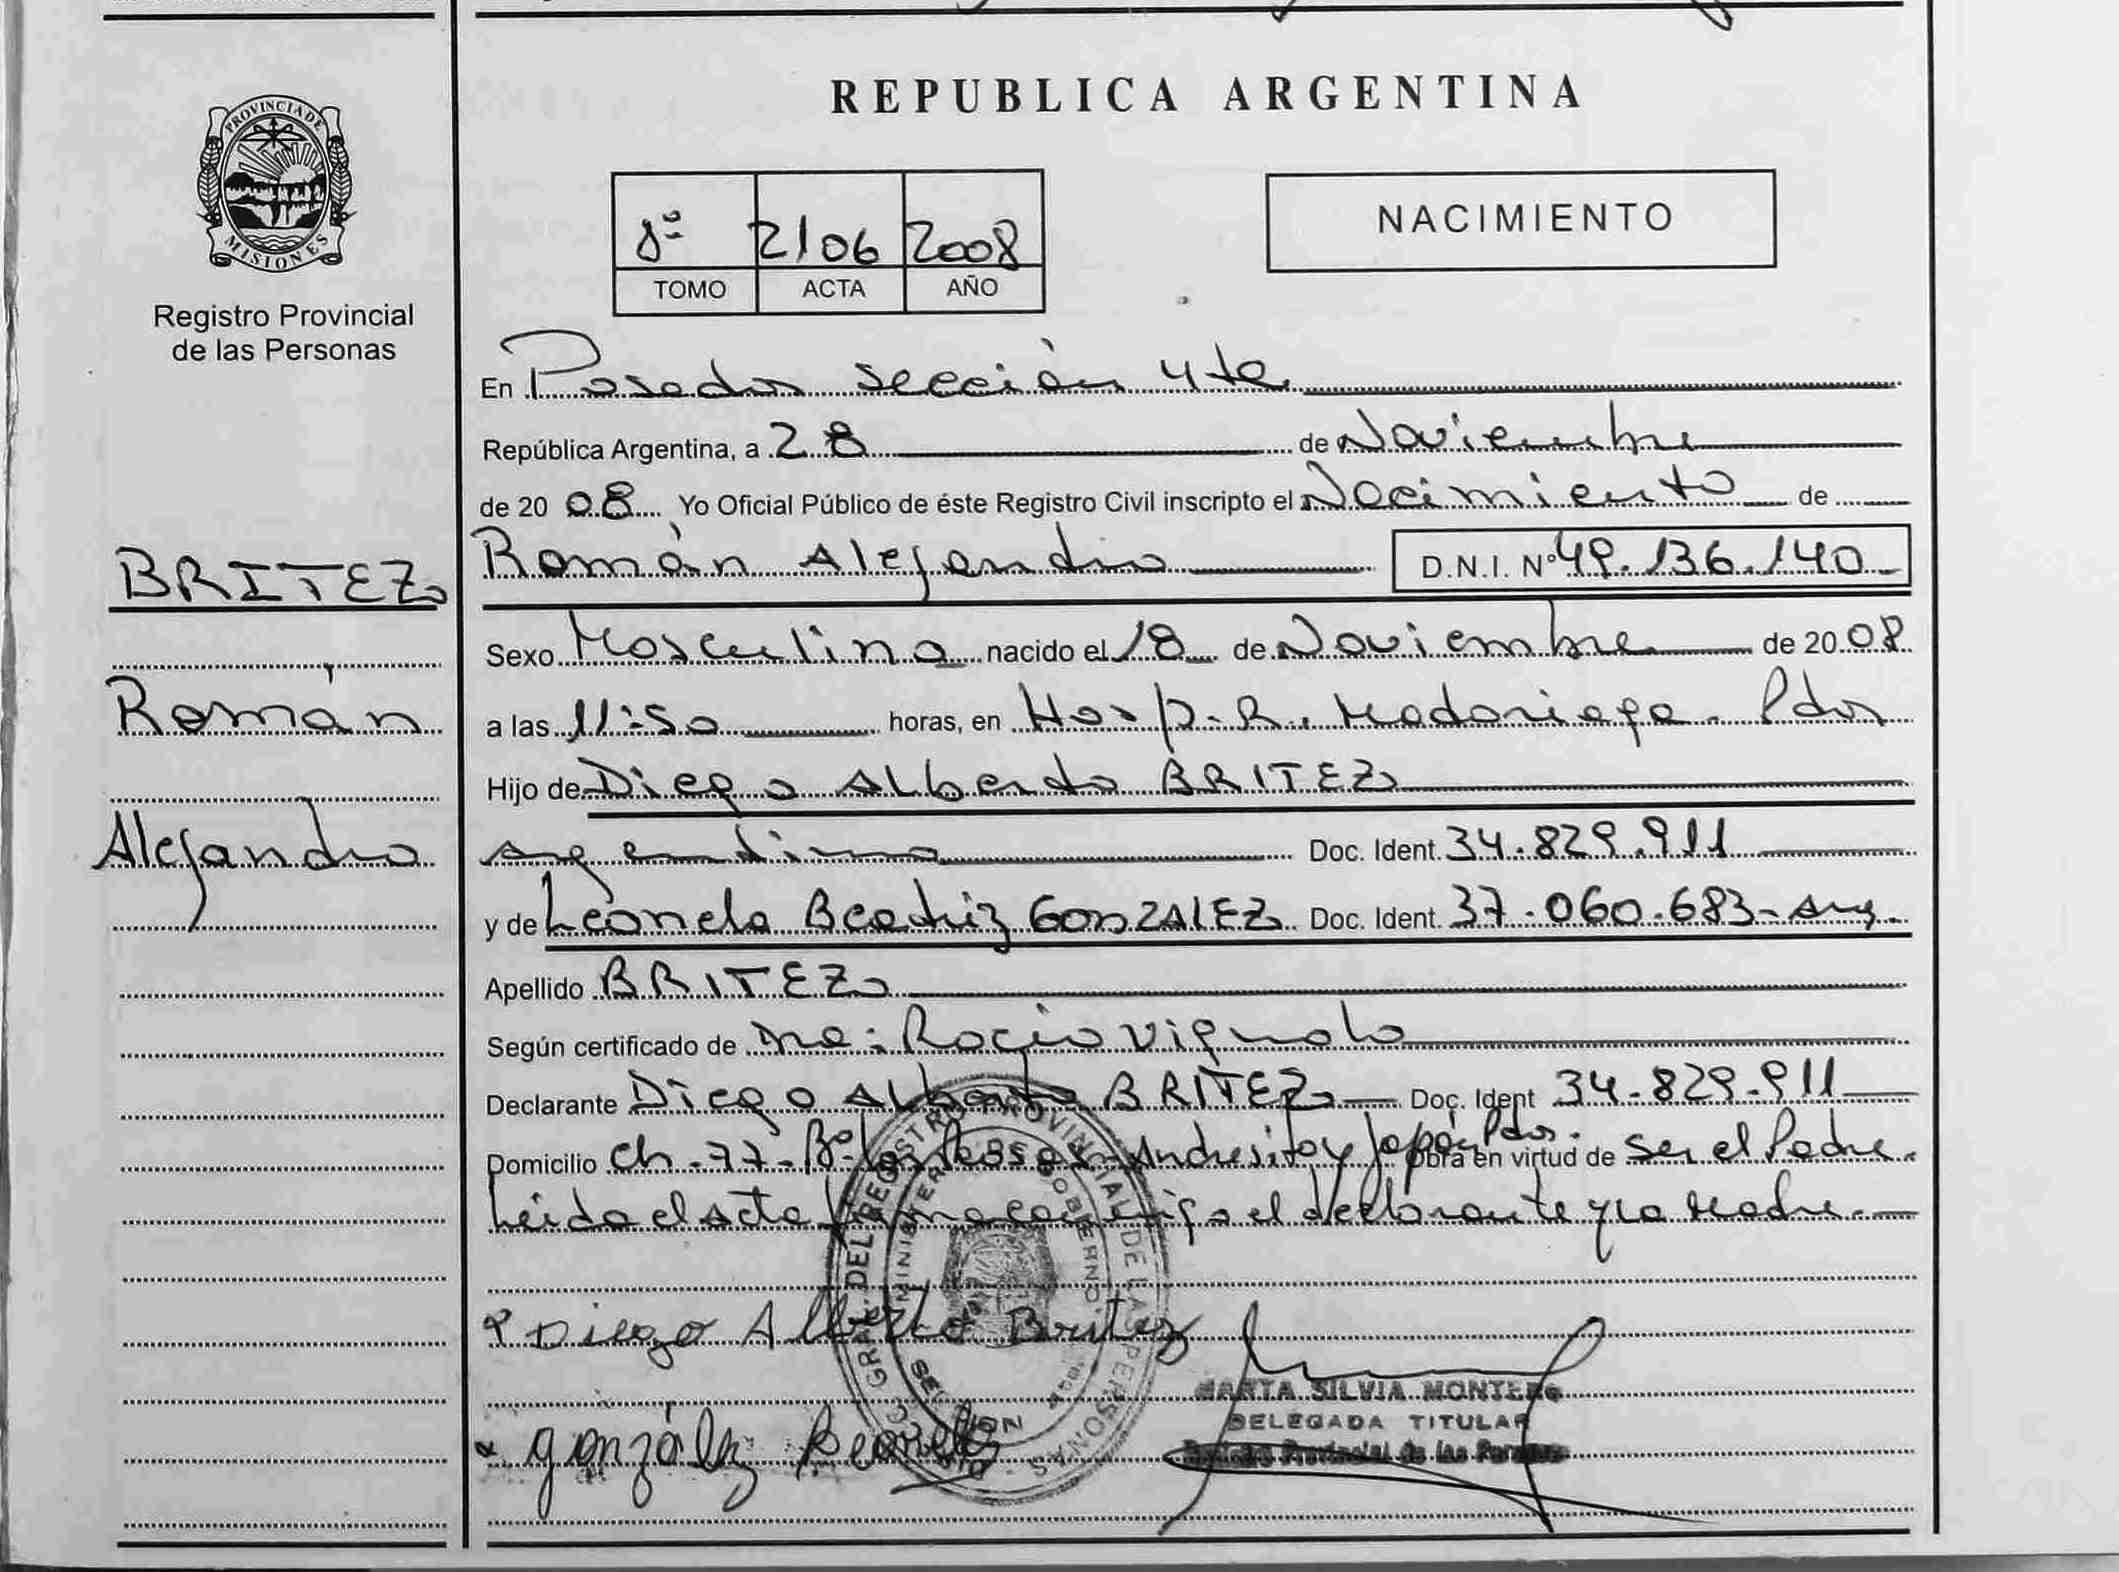 PROVINCIA DE
MISIONES
Registro Provincial
de las Personas
BRITEZ
Román
Alejandro
REPUBLICA ARGENTINA
8º 2106 2008
TOMO ACTA AÑO
NACIMIENTO
En Posadas sección 4ta
República Argentina, a 28 de Noviembre
de 2008 Yo Oficial Público de éste Registro Civil inscripto el Nacimiento de
Román Alejandro D.N.I. Nº 49.136.140
Sexo Masculino nacido el 18 de Noviembre de 2008
a las 11:50 horas, en Hosp. R. Madariaga. Pdas
Hijo de Diego Alberto BRITEZ
Argentino Doc. Ident. 34.829.911
y de Leonela Beatriz GONZALEZ Doc. Ident. 37.060.683-Arg.
Apellido BRITEZ
Según certificado de Rocío Vignolo
Declarante Diego Alberto BRITEZ Doc. Ident 34-829-911
Domicilio Ch.77-Bº Andresito y Japón Pdas. Obra en virtud de ser el Padre.
Leída el acta firma conmigo el declarante y la Madre.
Diego Alberto Britez
MARTA SILVIA MONTERO
DELEGADA TITULAR
Registro Provincial de las Personas
González Leonela
REGISTRO PROVINCIAL DE LAS PERSONAS